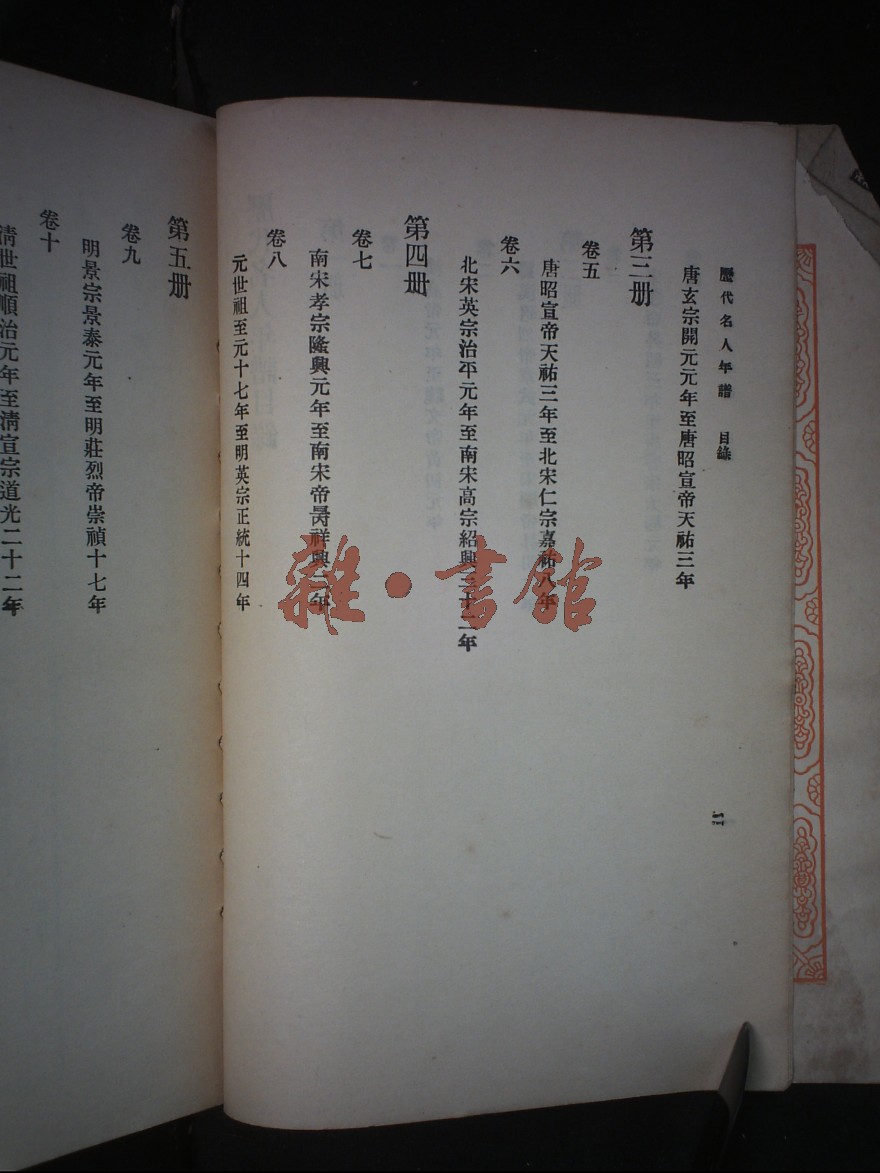 歷代名人年譜　目錄
唐玄宗開元元年至唐昭宣帝天祐三年
第三册
卷五
唐昭宣帝天祐三年至北宋仁宗嘉祐八年
卷六
北宋英宗治平元年至南宋高宗紹興三十二年
第四册
卷七
南宋孝宗隆興元年至南宋帝昺祥興二年
卷八
元世祖至元十七年至明英宗正統十四年
第五册
卷九
明景宗景泰元年至明莊烈帝崇禎十七年
卷十
清世祖順治元年至清宣宗道光二十二年
雜·書館